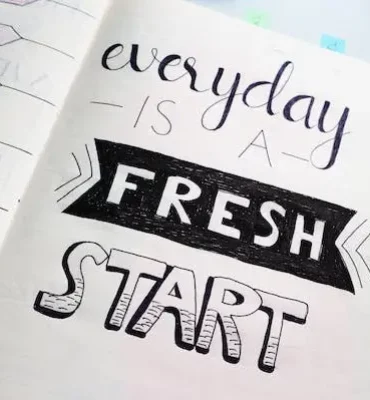 everyday
IS A
FRESH
START